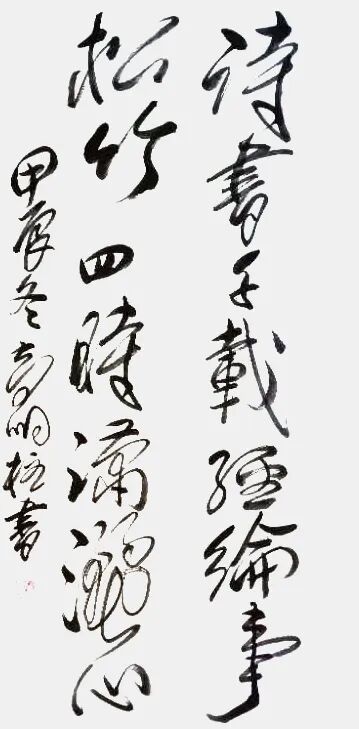 詩書千載經綸事
松竹四時瀟灑心
甲辰冬明書